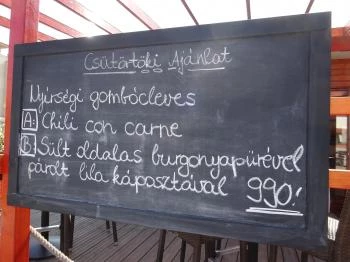 Csütörtöki Ajánlat
Nyírségi gombócleves
A: Chili con carne
B: Sült oldalas burgonyapürével
párolt lila káposztával 990.-